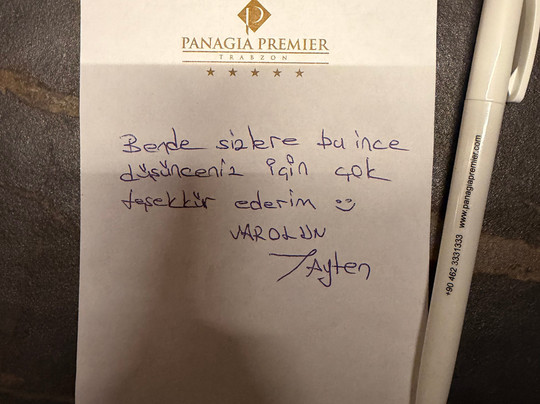 PANAGIA PREMIER
TRABZON
Bende sizlere bu ince
düşünceniz için çok
teşekkür ederim :)
VAROLUN
Ayten
+90 462 3331333 www.panagiapremier.com